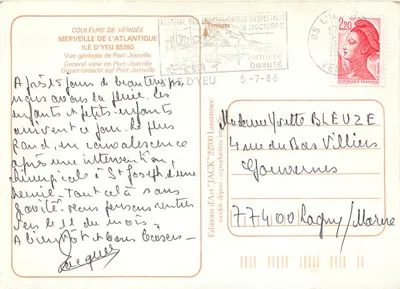 COULEURS DE VENDÉE
MERVEILLE DE L'ATLANTIQUE
ILE D'YEU 85350
Vue générale de Port-Joinville
General view on Port-Joinville
Gesamtansicht auf Port-Joinville
Après 15 jours de beau temps
nous avons la pluie. Les
enfants et petits-enfants
arrivent ce jour. Le plus
grand, en convalescence
après une intervention
chirurgicale à St Joseph
Tout cela sans
gravité. Nous pensons rentrer
vers le 11 du mois.
A bientôt et bons baisers
Jacques
Editions d'Art "JACK"
D'YEU
beauté
5-7-88
2,20
RÉPUBLIQUE FRANÇAISE
Madame Yvette BLEUZE
4 rue du Bas Villiers
Gouvernes
77400 Lagny/Marne